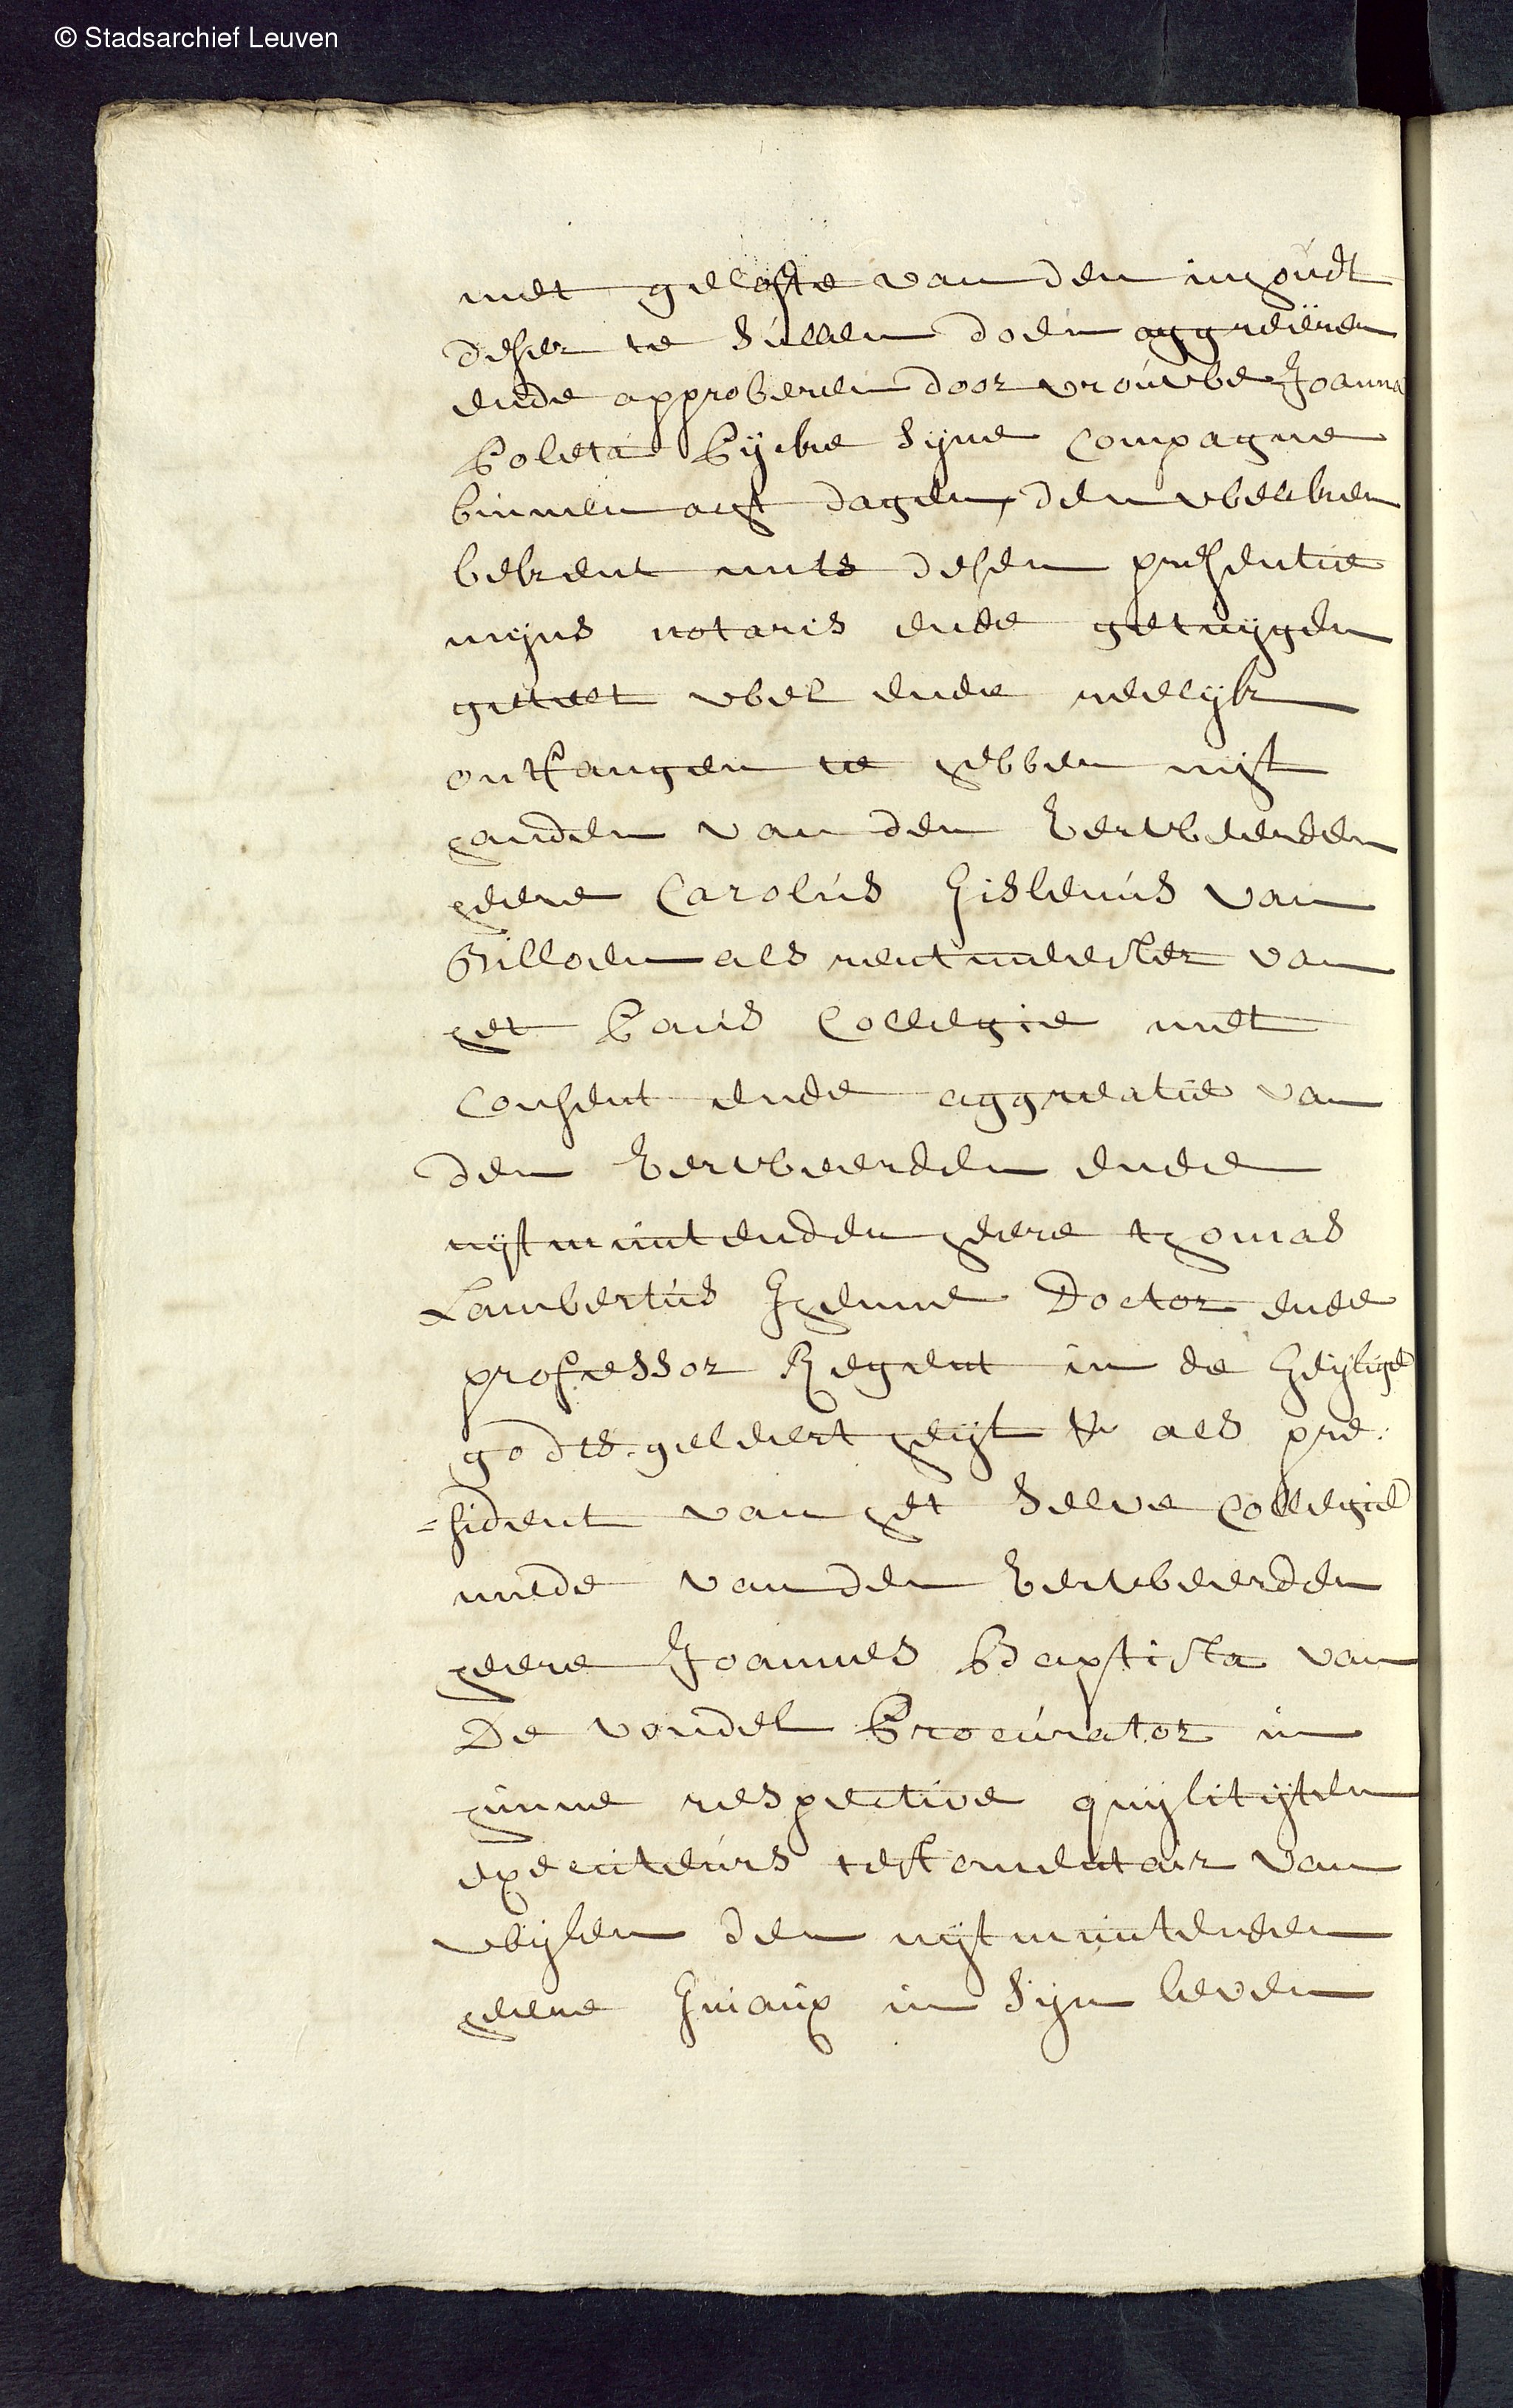 © Stadsarchief Leuven
met gelofte van den inhoudt
deser te sullen doen aggreëren
ende approberen door vrouwe Joanna
Coleta Pijcke sijne Compagne
binnen acht dagen, den welcken
bekent mits desen presentie
mijns notaris ende getuijgen
getelt wel ende reelijk
ontfangen te hebben uijt
handen van den Eerweerden
heere Carolus Gislenus van
Billoen als rentmeester van
het Paus Collegie met
Consent ende aggreatie van
den Eerweerden ende
uijtmuntenden heere thomas
Lambertus Ghenne Doctor ende
professor Regent in de heijlige
godts-geleertheijt & als pre:
=sident van het selve Collegie
mede van den Eerweerden
heere Joannes Baptista van
De vondel Procurator in
hunne respective qualitijten
executeurs testamentair van
wijlen den uijtmuntenden
heere Guiaux in sijn leven